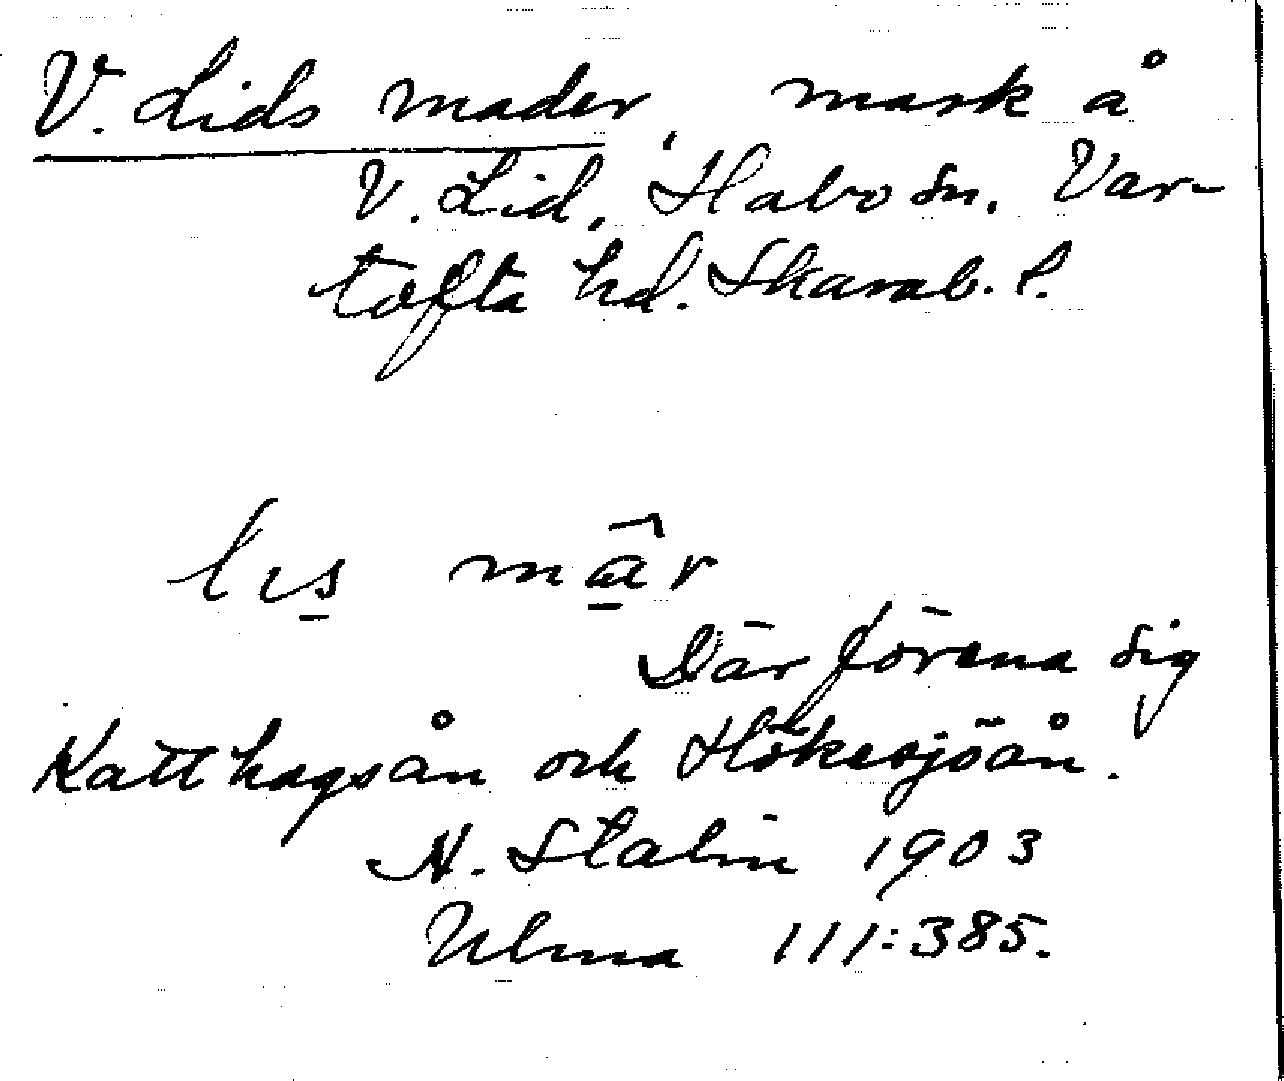 V. Lids mader, mark å
V. Lid, Habo sn. Var-
tofta hd. Skarab. l.
lis mâr
Där förena sig
Katthagsån och Hökesjöån.
N. Stalin 1903
Ulma 111:385.